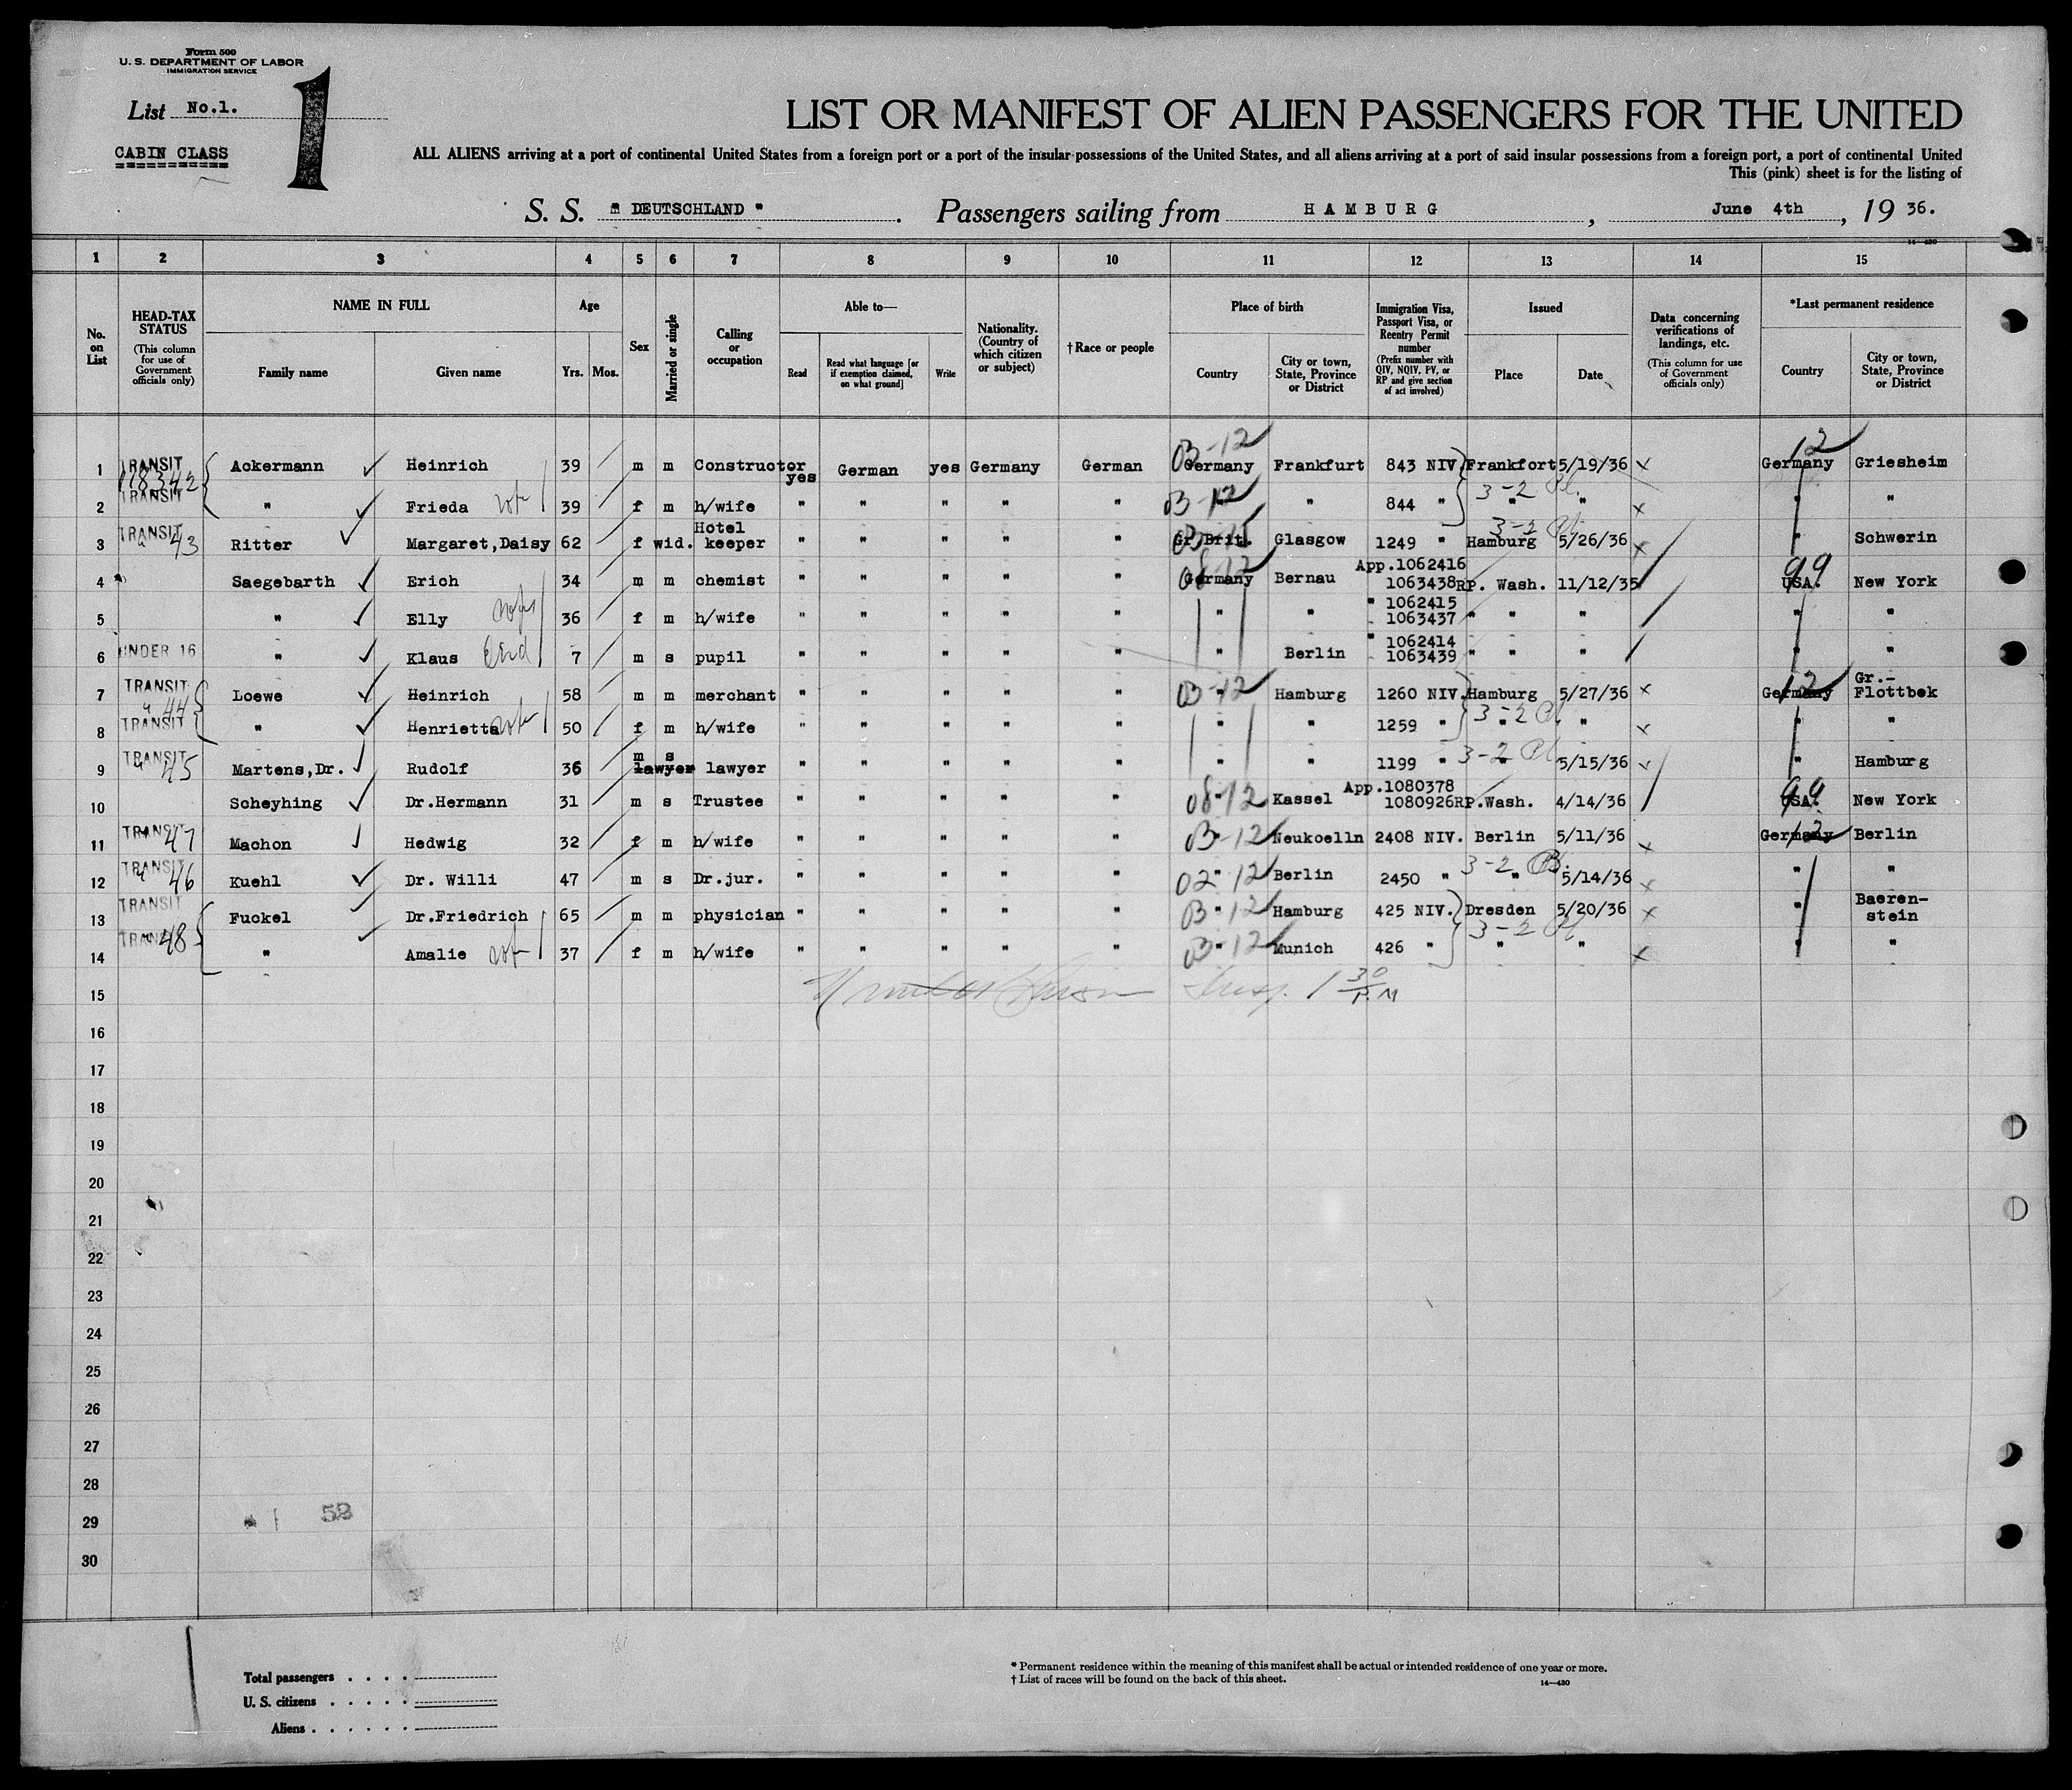 Form 500
U. S. DEPARTMENT OF LABOR
IMMIGRATION SERVICE
1
List No.1.
CABIN CLASS
LIST OR MANIFEST OF ALIEN PASSENGERS FOR THE UNITED
ALL ALIENS arriving at a port of continental United States from a foreign port or a port of the insular possessions of the United States, and all aliens arriving at a port of said insular possessions from a foreign port, a port of continental United
This (pink) sheet is for the listing of
S. S. " DEUTSCHLAND " . Passengers sailing from HAMBURG , June 4th , 19 36.
14—430
1 2 3 4 5 6 7 8 9 10 11 12 13 14 15
No. on List
HEAD-TAX STATUS (This column for use of Government officials only)
NAME IN FULL
Family name
Given name
Age
Yrs. Mos.
Sex
Married or single
Calling or occupation
Able to—
Read
Read what language [or if exemption claimed, on what ground]
Write
Nationality. (Country of which citizen or subject)
†Race or people
Place of birth
Country
City or town, State, Province or District
Immigration Visa, Passport Visa, or Reentry Permit number (Prefix number with QIV, NQIV, PV, or RP and give section of act involved)
Issued
Place
Date
Data concerning verifications of landings, etc. (This column for use of Government officials only)
*Last permanent residence
Country
City or town, State, Province or District
1 TRANSIT 118342 Ackermann Heinrich 39 m m Constructor yes German yes Germany German Germany 03-12 Frankfurt 843 NIV. Frankfort 5/19/36 x Germany 12 Griesheim
2 TRANSIT " Frieda 39 f m h/wife " " " " " 03-12 " 844 " 3-2 " " x " "
3 TRANSIT " 43 Ritter Margaret,Daisy 62 f wid. Hotel keeper " " " " " Gr.Brit. Glasgow 1249 " 3-2 Hamburg 5/26/36 x " Schwerin
4 Saegebarth Erich 34 m m chemist " " " " " Germany Bernau App.1062416 1063438RP. Wash. 11/12/35 USA. 99 New York
5 " Elly 36 f m h/wife " " " " " " " " 1062415 1063437 " " " " "
6 UNDER 16 " Klaus 7 m s pupil " " " " " " Berlin " 1062414 1063439 " " " " "
7 TRANSIT " 44 Loewe Heinrich 58 m m merchant " " " " " 03-12 Hamburg 1260 NIV. Hamburg 5/27/36 x Germany 12 Gr.-Flottbek
8 TRANSIT " Henrietta 50 f m h/wife " " " " " " " 1259 " 3-2 " " x " "
9 TRANSIT " 45 Martens,Dr. Rudolf 36 m s lawyer lawyer " " " " " " " 1199 " 3-2 " 5/15/36 x " Hamburg
10 Scheyhing Dr.Hermann 31 m s Trustee " " " " " 08-12 Kassel App.1080378 1080926RP.Wash. 4/14/36 USA. 99 New York
11 TRANSIT " 47 Machon Hedwig 32 f m h/wife " " " " " 03-12 Neukoelln 2408 NIV. Berlin 5/11/36 x Germany 12 Berlin
12 TRANSIT " 46 Kuehl Dr. Willi 47 m s Dr.jur. " " " " " 02-12 Berlin 2450 " 3-2 " 5/14/36 x " "
13 TRANSIT Fuckel Dr.Friedrich 65 m m physician " " " " " 03-12 Hamburg 425 NIV. Dresden 5/20/36 x " Baeren-stein
14 TRANSIT " 48 " Amalie 37 f m h/wife " " " " " 03-12 Munich 426 " 3-2 " " x " "
15 Insp. 1 30 P.M
16
17
18
19
20
21
22
23
24
25
26
27
28
29 52
30
Total passengers . . . .
U. S. citizens . . . . .
Aliens . . . . . .
* Permanent residence within the meaning of this manifest shall be actual or intended residence of one year or more.
† List of races will be found on the back of this sheet.
14—430